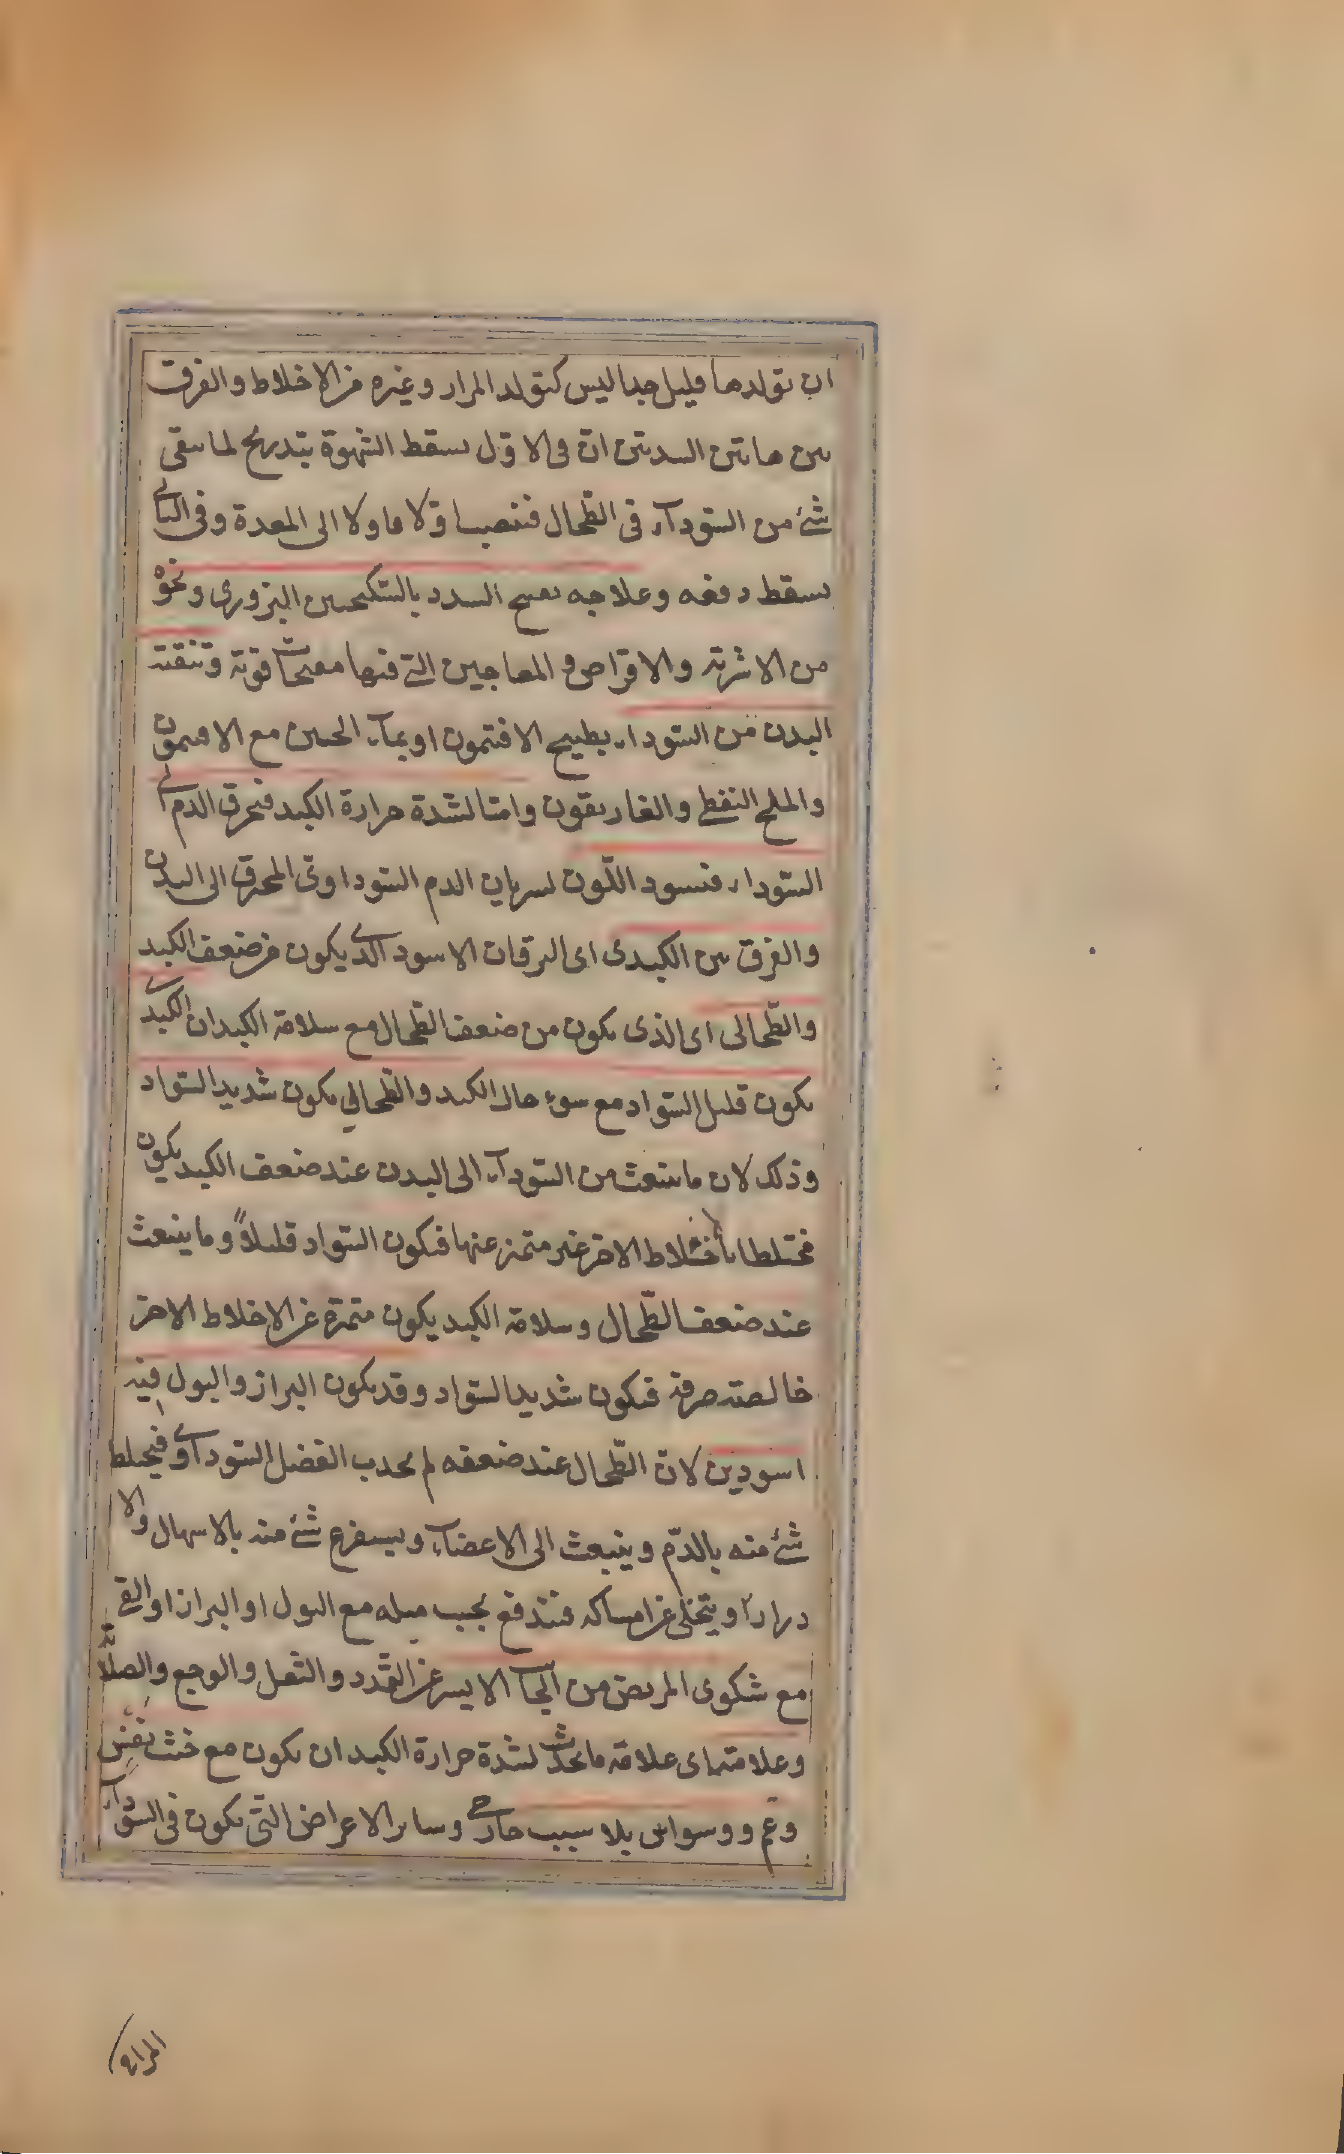 ان تولدها قليل جدا ليس كتولد المرار وغيره من الاخلاط والفرق
بين هاتين السدتين انّ فى الاوّل يسقط الشهوة بتدريج لما يبقى
شئ من السّودآء فى الطّحال فتنصب اوّلا فاولا الى المعدة وفى الثانى
يسقط دفعه وعلاجه تفتيح السدد بالسّكنجبين البزورى ونحوه
من الاشربة والاقراص والمعاجين التى فيها مفتحات قوية وتنقية
البدن من السّوداء بطبيخ الافتيمون او بمآء الجبن مع الافتيمون
والملح النفطى والغاريقون وامّا لشدة حرارة الكبد فيحرق الدم الى
السّوداء فيسود اللّون لسريان الدم السّوداوىّ المحرق الى البدن
والفرق بين الكبدى اى اليرقان الاسود الذى يكون من ضعف الكبد
والطّحالى اى الذى يكون من ضعف الطّحال مع سلامة الكبد ان الكبدى
يكون قليل السّواد مع سوء حال الكبد والطّحالى يكون شديد السّواد
وذلك لان ما ينبعث من السّودآء الى البدن عند ضعف الكبد يكون
مختلطا بالاخلاط الاخر غير متميز عنها فيكون السّواد قليلاً وما ينبعث
عند ضعف الطّحال وسلامة الكبد يكون متميزة عن الاخلاط الاخر
خالصة صرفة فيكون شديد السّواد وقد يكون البراز والبول فيه
اسودين لانّ الطّحال عند ضعفه لم يجذب الفضل السّودآوى فيختلط
شئ منه بالدّم وينبعث الى الاعضآء ويستفرغ شئ منه بالاسهال والا
درار او يتخلى عن امساكه فيندفع بحسب ميله مع البول او البراز او القئ
مع شكوى المريض من الجآنب الايسر عن التّمدد والثقل والوجع والصلابة
وعلامته اى علامة ما يحدث لشدة حرارة الكبد ان يكون مع خبث نفس
وغمّ ووسواس بلا سبب خارجى وساير الاعراض التّى يكون فى السّودآء